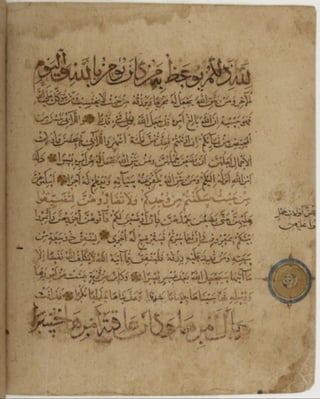 لله ذلكم يوعظ به من كان يؤمن بالله واليوم
الآخر ومن يتق الله يجعل له مخرجا ويرزقه من حيث لا يحتسب ومن يتوكل على الله
فهو حسبه إن الله بالغ أمره قد جعل الله لكل شيء قدرا واللائي يئسن من
المحيض من نسائكم إن ارتبتم فعدتهن ثلاثة أشهر واللائي لم يحضن وأولات
الأحمال أجلهن أن يضعن حملهن ومن يتق الله يجعل له من أمره يسرا ذلك
أمر الله أنزله إليكم ومن يتق الله يكفر عنه سيئاته ويعظم له أجرا أسكنوهن
من حيث سكنتم من وجدكم ولا تضاروهن لتضيقوا
عليهن حتى يضعن حملهن فإن أرضعن لكم فآتوهن أجورهن وأتمروا
بينكم بمعروف وإن تعاسرتم فسترضع له أخرى لينفق ذو سعة من
سعته ومن قدر عليه رزقه فلينفق مما آتاه الله لا يكلف الله نفسا إلا
ما آتاها سيجعل الله بعد عسر يسرا وكأين من قرية عتت عن أمر ربها
ورسله فحاسبناها حسابا شديدا وعذبناها عذابا نكرا فذاقت
وبال أمرها وكان عاقبة أمرها خسرا